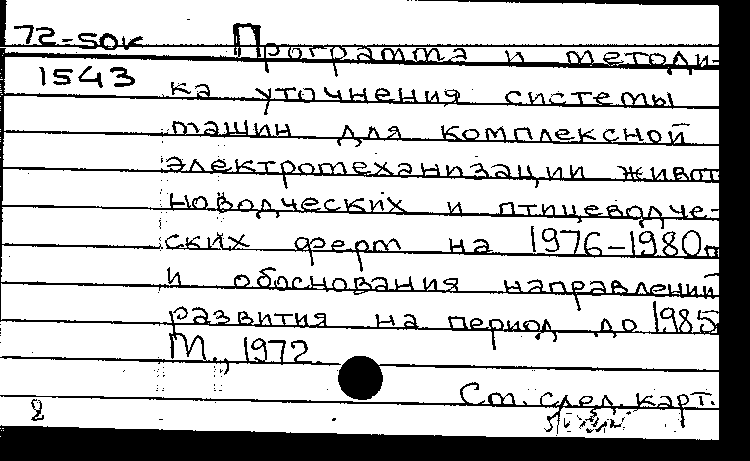 72-50к Программа и методи-
1543 ка уточнения системы
машин для комплексной
электротеханизации живот
новодческих и птицеводче-
ских ферм на 1976-1980гг
и обоснования направлений
развития на период до 1985
М., 1972.
См. след. карт.
2